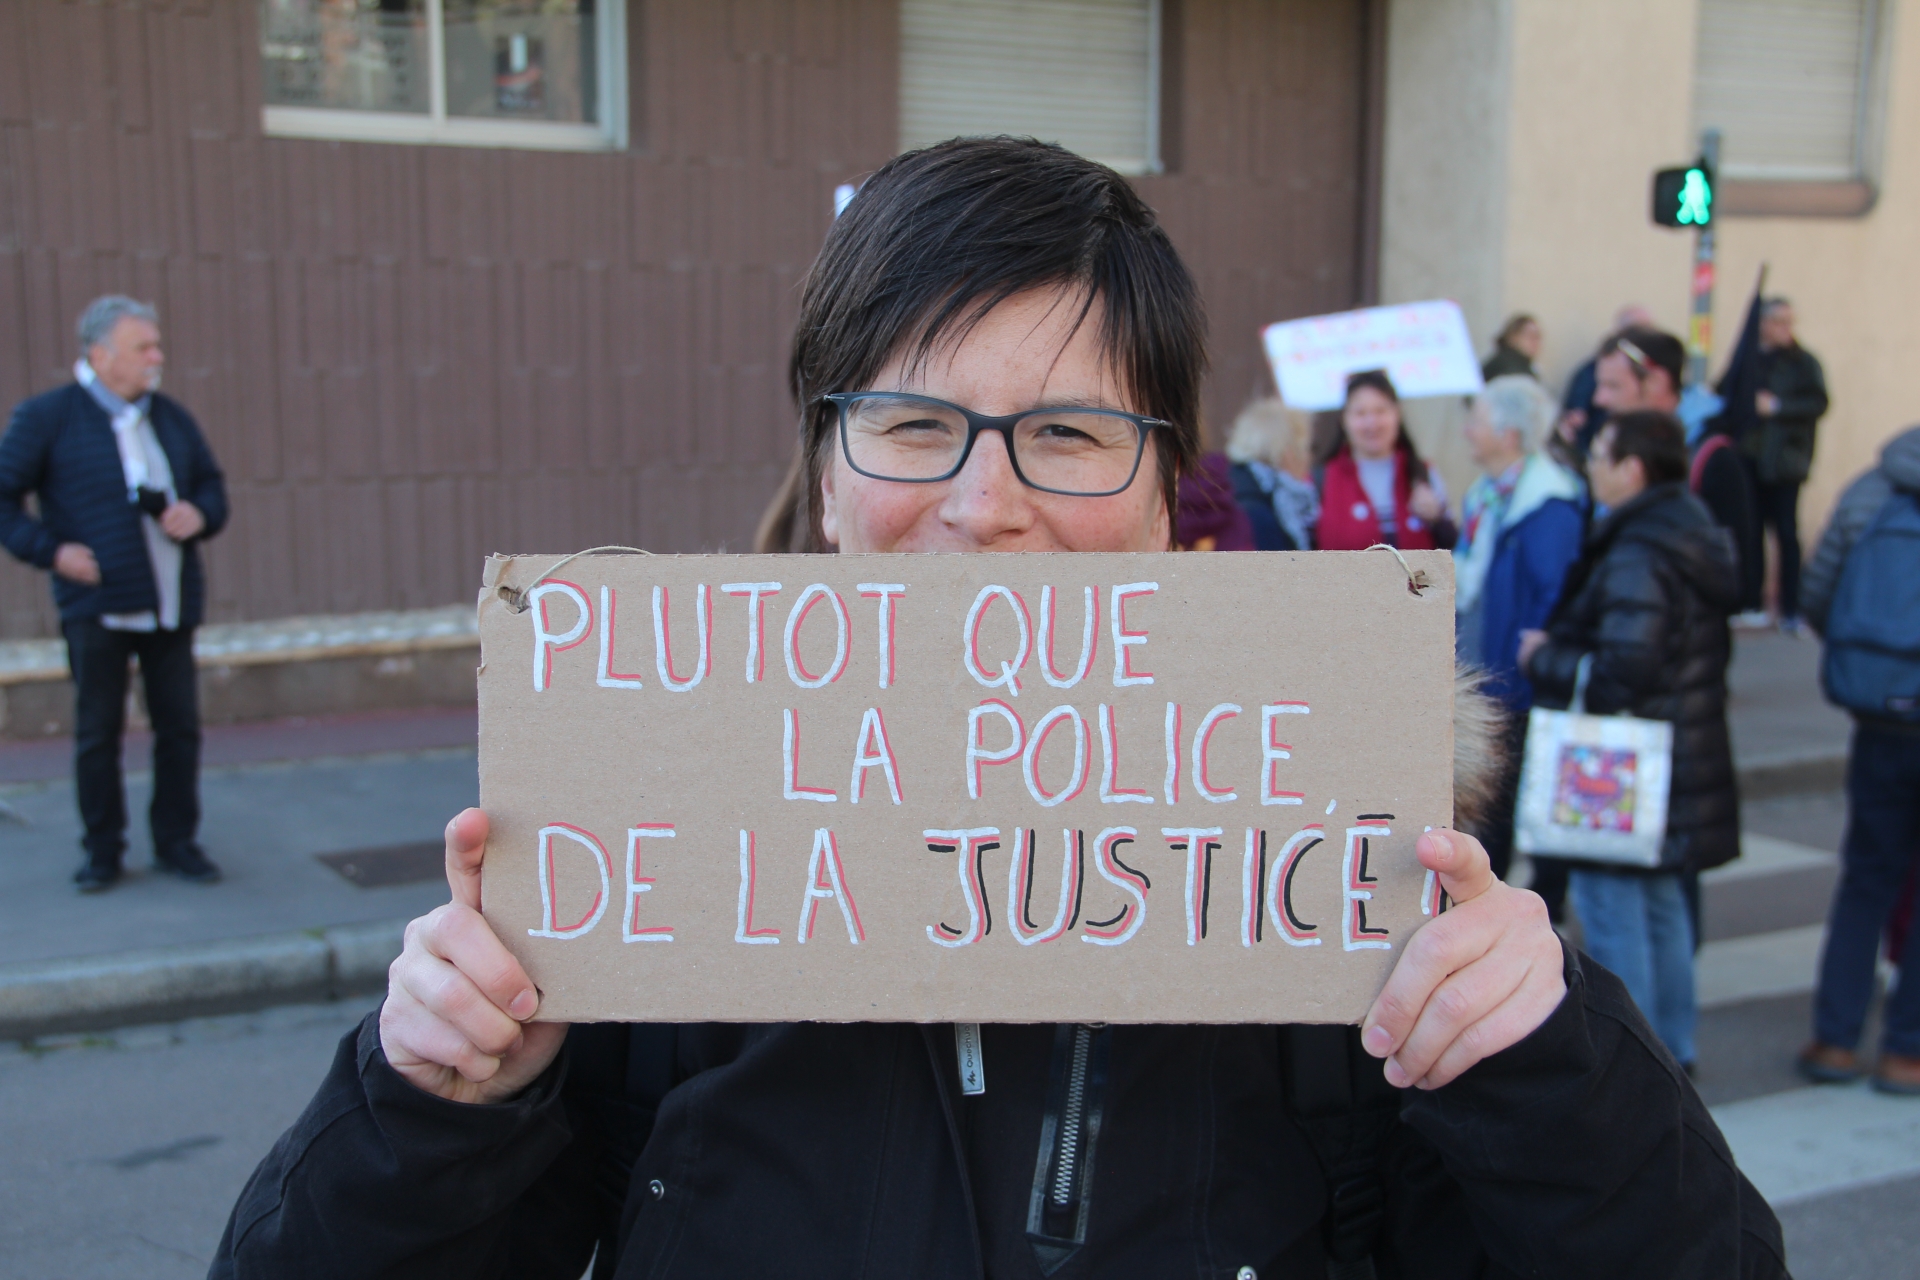 PLUTOT QUE
LA POLICE,
DE LA JUSTICE !
Quechua